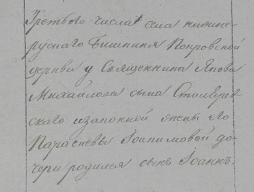 Третьяго числа села нижне-
рускаго Бишкиня Покровской
церкви у Священника Якова
Михайлова сына Столярев-
скаго и законной жены его
Параскевы Іоакимовой до-
чери родился сынъ Іоаннъ.